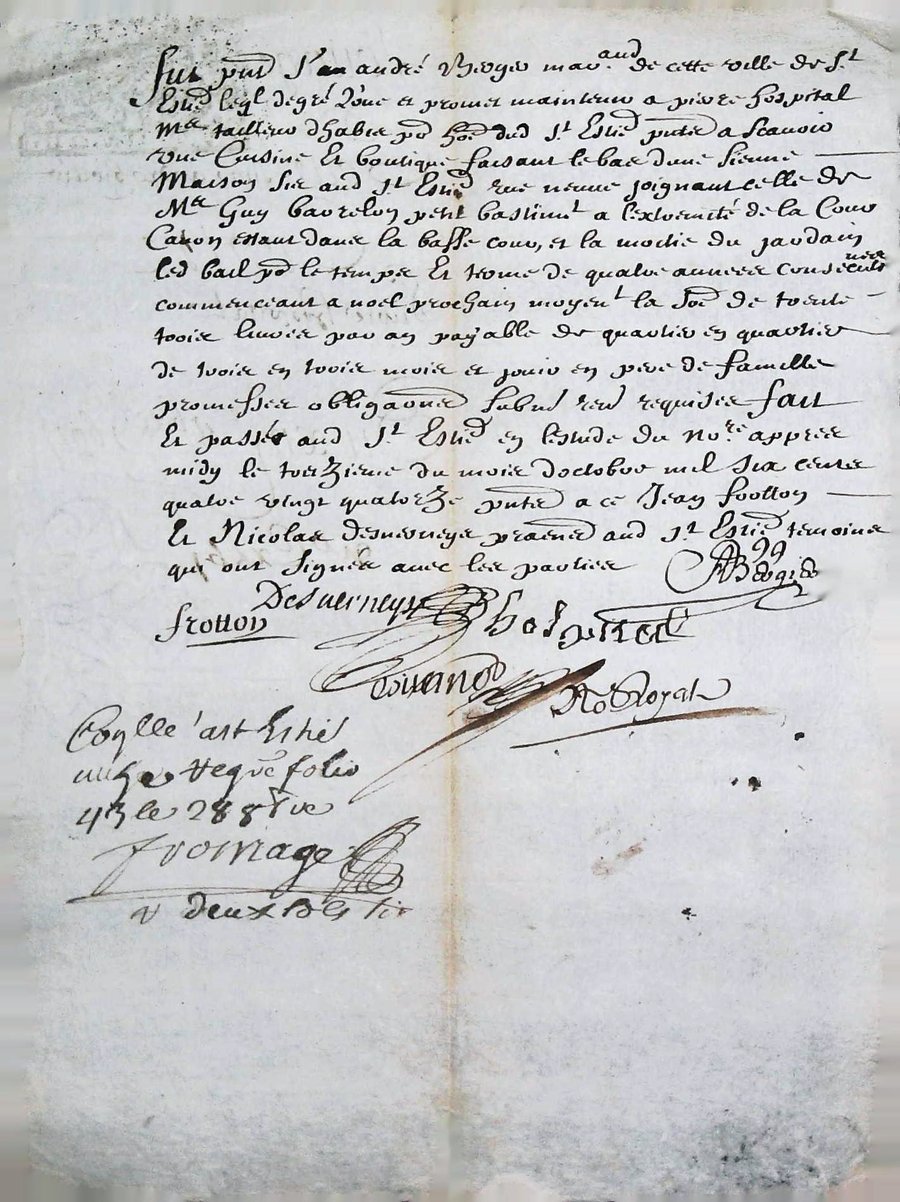 fut pnt Sr andré Berger marand de cette ville de St
Estie leql de gré Loue et promet maintenir a pierre hospital
Me tailleur dhabis po hoe dud St Estie pnt a scavoir
vne Cuisine Et boutique faisant le bas dune sienne
Maison size aud St Estie rue neuve joignant celle de
Me Guy barrelon petit bastimt a lextremité de la Cour
Cavon estant dans la basse cour, et la moitie du jardain
led bail po le temps Et terme de quatre annees consecutiues
commenceant a noel prochain moyent la soe de trente
trois liures par an payable de quartier en quartier
de trois en trois mois et jouir en pere de famille
promesses obligaones submis ren requises fait
Et passés aud St Estie en lestude du nore appres
midy le treizieme du mois doctobre mil six cents
quatre vingt quatorze pnts a ce Jean frotton
Et Nicolas desverneys praen aud St Estie temoins
qui ont signés avec les parties ABergier
frotton Desverneys hospital
Royat
Coglle a st Estie
folio
43 le 28 8bre
fromage
deux